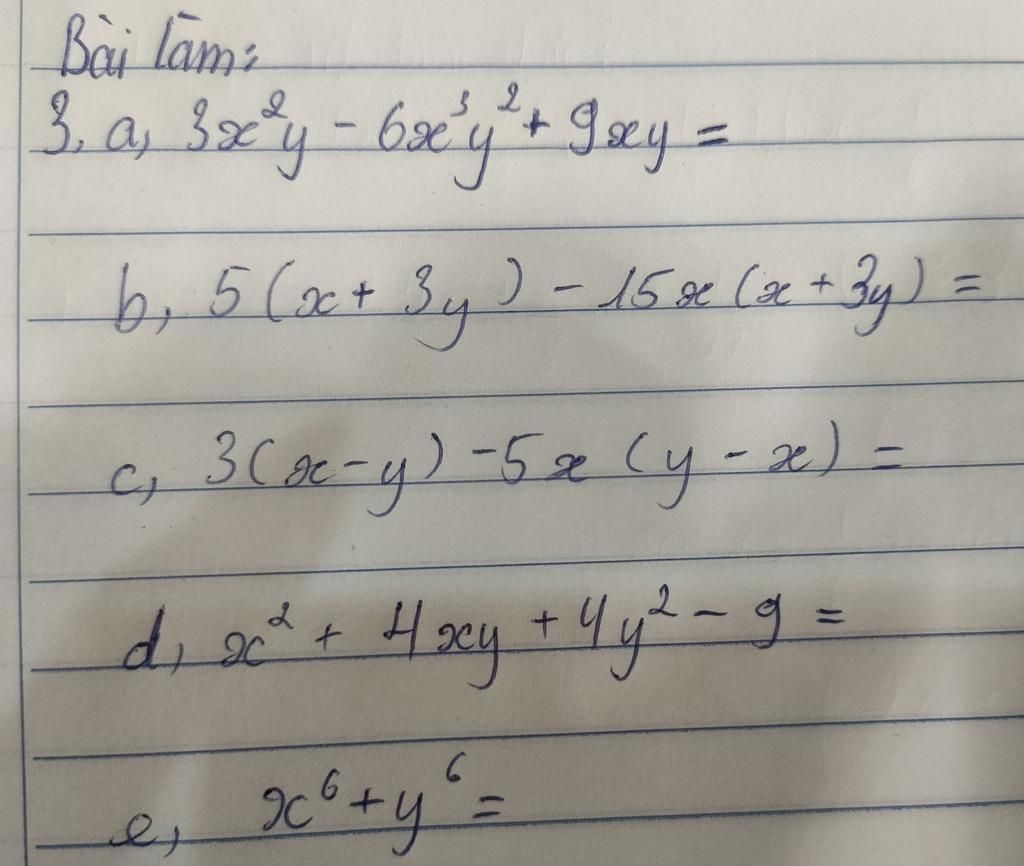 Bài làm:
3, a, 3x²y - 6x³y² + 9xy =
b, 5(x + 3y) - 15x(x + 3y) =
c, 3(x-y) - 5x(y - x) =
d, x² + 4xy + 4y² - 9 =
e, x⁶ + y⁶ =